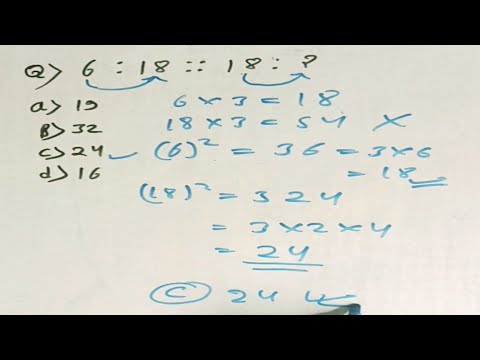 Q> 6 : 18 :: 18 : ?
a> 19
B> 32
c> 24 ✓
d> 16
6 × 3 = 18
18 × 3 = 54 ×
(6)² = 36 = 3×6
= 18
(18)² = 324
= 3×2×4
= 24
(C) 24